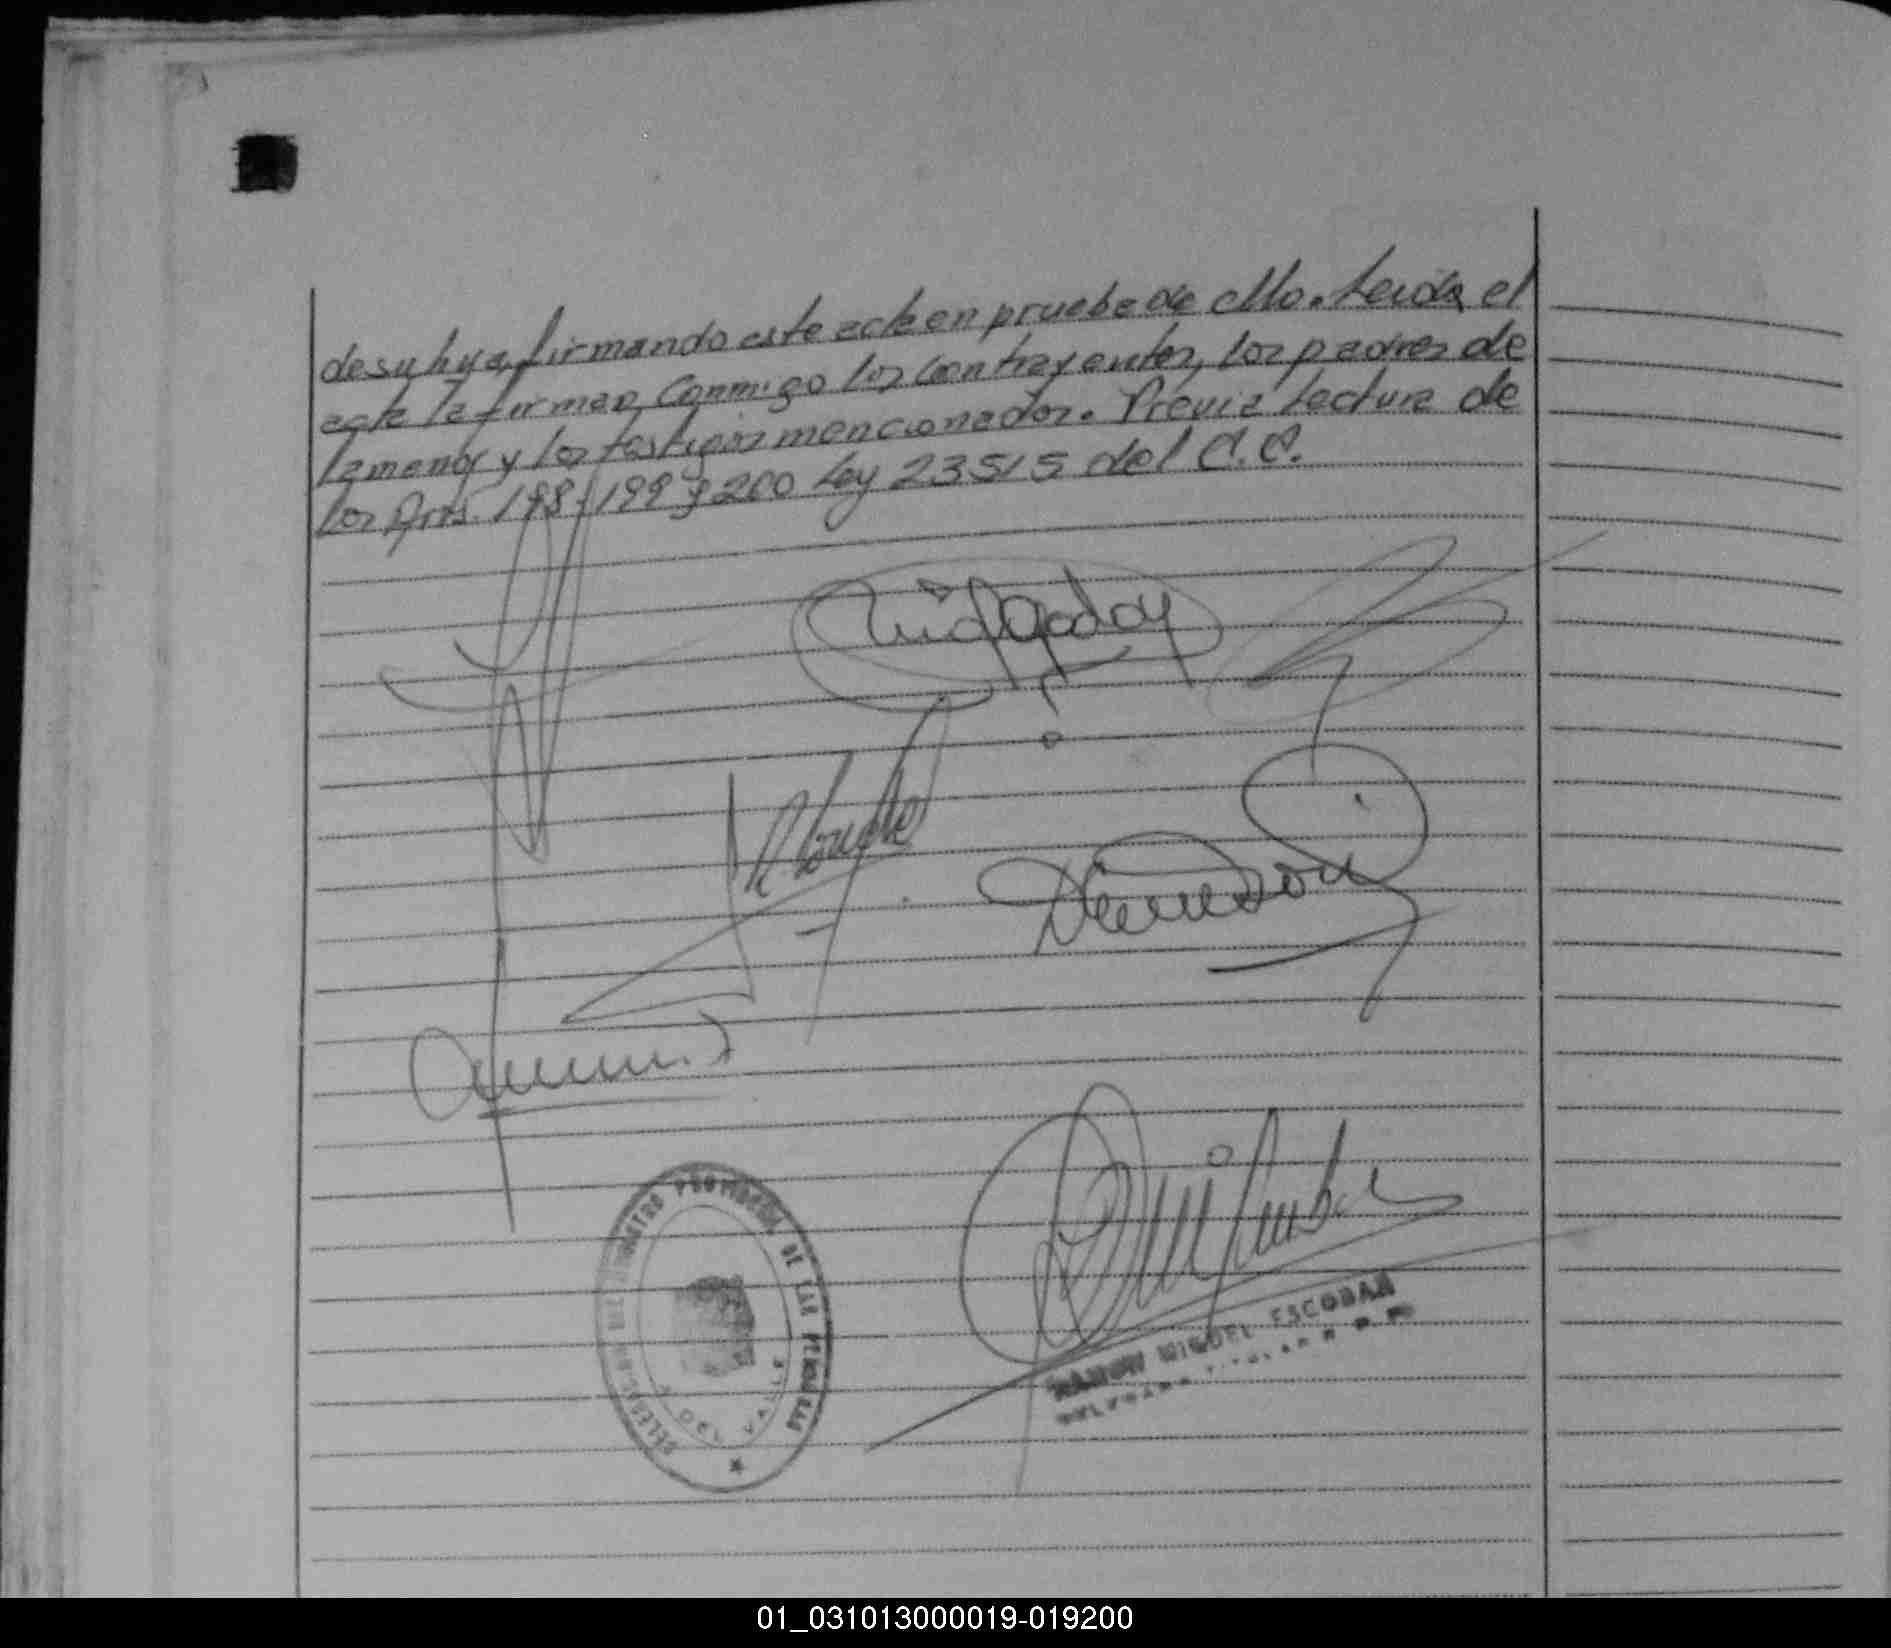 de su hija, firmando este acta en prueba de ello. Leida el
acta la firman conmigo los contrayentes, los padres de
la menor y los testigos mencionados. Previa lectura de
los Arts. 198-199 y 200 Ley 23515 del C.C.
Luis Godoy
REGISTRO PROVINCIAL DE LAS PERSONAS
DEL VALLE
RAMON MIGUEL ESCOBAR
01_031013000019-019200